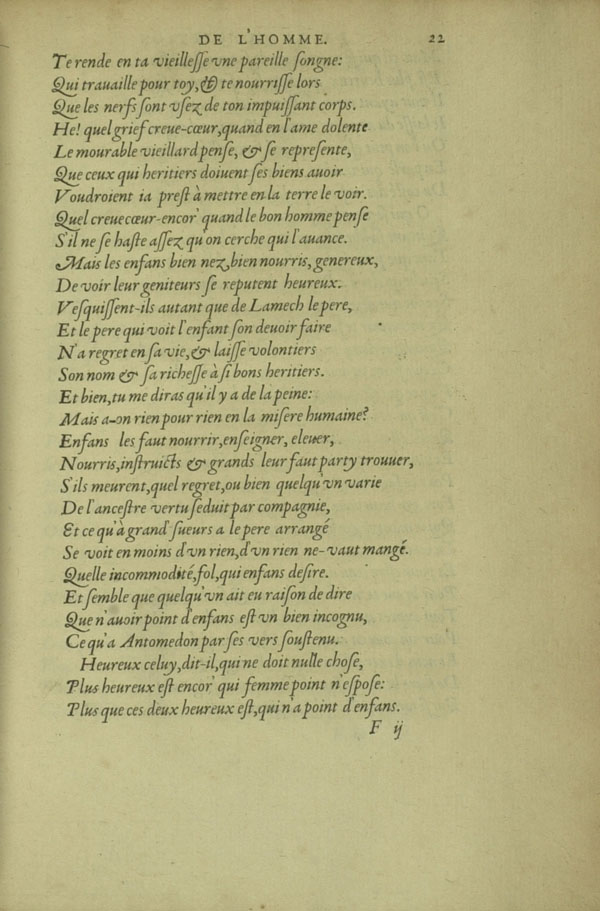 DE L'HOMME. 22
Te rende en ta vieilleſſe vne pareille ſongne:
Qui trauaille pour toy, & te nourriſſe lors
Que les nerfs ſont vſez de ton impuiſſant corps.
He! quel grief creue-cœur, quand en l'ame dolente
Le mourable vieillard penſe, & ſe repreſente,
Que ceux qui heritiers doiuent ſes biens auoir
Voudroient ia preſt à mettre en la terre le voir.
Quel creuecœur-encor' quand le bon homme penſe
S'il ne ſe haſte aſſez qu'on cerche qui l'auance.
Mais les enfans bien nez, bien nourris, genereux,
De voir leur geniteurs ſe reputent heureux.
Veſquiſſent-ils autant que de Lamech le pere,
Et le pere qui voit l'enfant ſon deuoir faire
N'a regret en ſa vie, & laiſſe volontiers
Son nom & ſa richeſſe à ſi bons heritiers.
Et bien, tu me diras qu'il y a de la peine:
Mais a-on rien pour rien en la miſere humaine?
Enfans les faut nourrir, enſeigner, eleuer,
Nourris, inſtruicts & grands leur faut party trouuer,
S'ils meurent, quel regret, ou bien quelqu'vn varie
De l'anceſtre vertu ſeduit par compagnie,
Et ce qu'à grand' ſueurs a le pere arrangé
Se voit en moins d'vn rien, d'vn rien ne-vaut mangé.
Quelle incommodité, fol, qui enfans deſire.
Et ſemble que quelqu'vn ait eu raiſon de dire
Que n'auoir point d'enfans eſt vn bien incognu,
Ce qu'a Antomedon par ſes vers ſouſtenu.
Heureux celuy, dit-il, qui ne doit nulle choſe,
Plus heureux eſt encor' qui femme point n'eſpoſe:
Plus que ces deux heureux eſt, qui n'a point d'enfans.
F ij